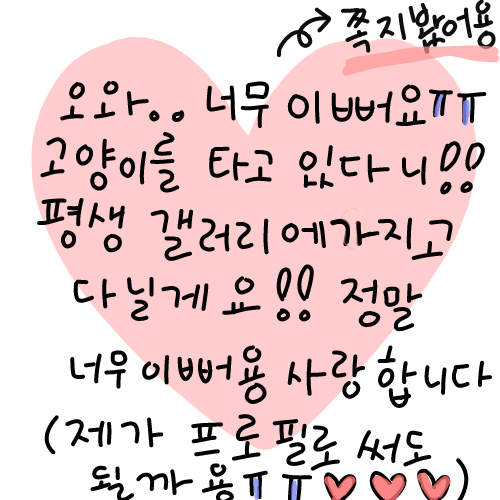 쪽지봤어용
오와.. 너무 이뻐요ㅠㅠ
고양이를 타고 있다니!!
평생 갤러리에가지고
다닐게요!! 정말
너무이뻐용 사랑합니다
(제가 프로필로 써도
될까용ㅠㅠ♥♥♥)